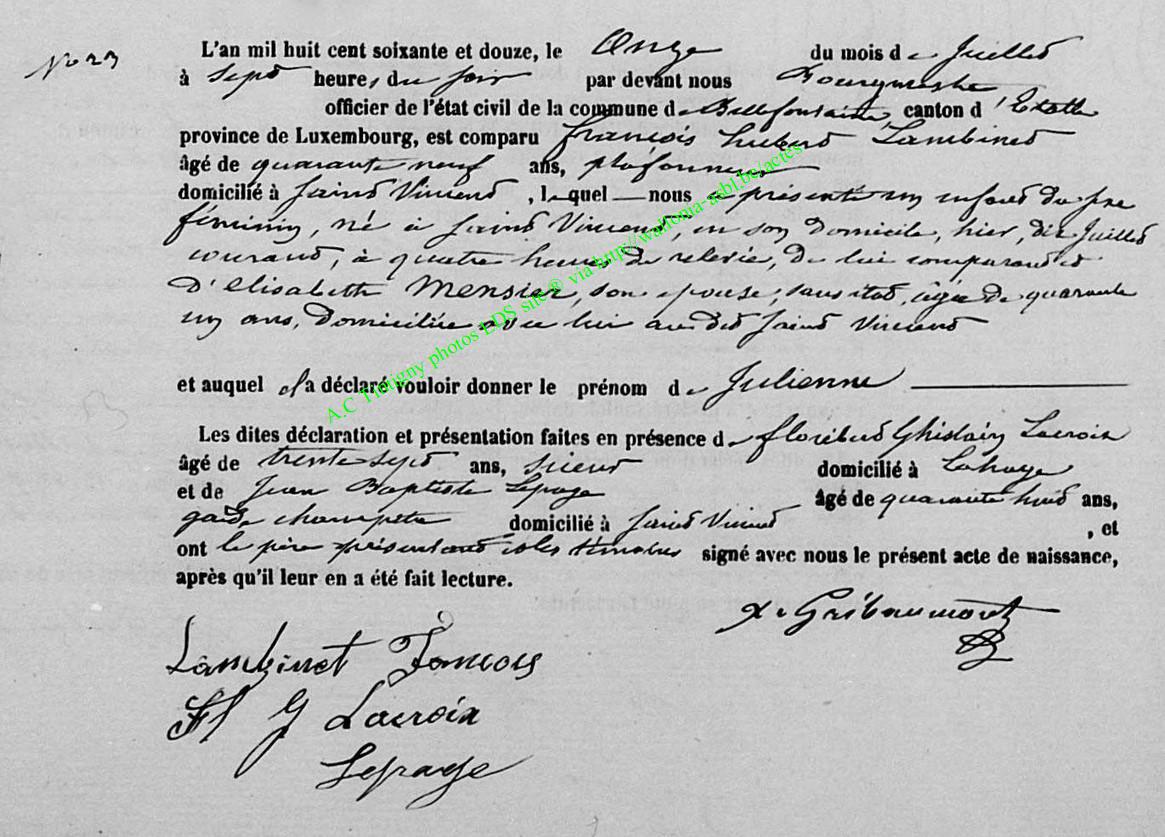 No 23
L'an mil huit cent soixante et douze, le Onze du mois de Juillet
à Sept heures du soir par devant nous Bourgmestre
officier de l'état civil de la commune de Bellefontaine canton d'Etalle
province de Luxembourg, est comparu François Hubert Lambinet
âgé de quarante neuf ans, plafonneur
domicilié à Saint Vincent, lequel — nous a présenté un enfant du sexe
féminin, né à Saint Vincent, en son domicile, hier, dix Juillet
courant, à quatre heures de relevée, de lui comparant et
d'Elisabeth Mensier, son epouse, sans état, âgée de quarante
un ans, domiciliée avec lui au dit Saint Vincent
et auquel il a déclaré vouloir donner le prénom de Julienne
Les dites déclaration et présentation faites en présence de Floribert Ghislain Lacroix
âgé de trente sept ans, scieur domicilié à Lahage
et de Jean Baptiste Lepage âgé de quarante huit ans,
garde champetre domicilié à Saint Vincent, et
ont le père présentant et les témoins signé avec nous le présent acte de naissance,
après qu'il leur en a été fait lecture.
X. Gribaumont
Lambinet François
Fl G Lacroix
Lepage
A.C Tintigny photos EDS site ® via http://wallonia-asbl.be/actes